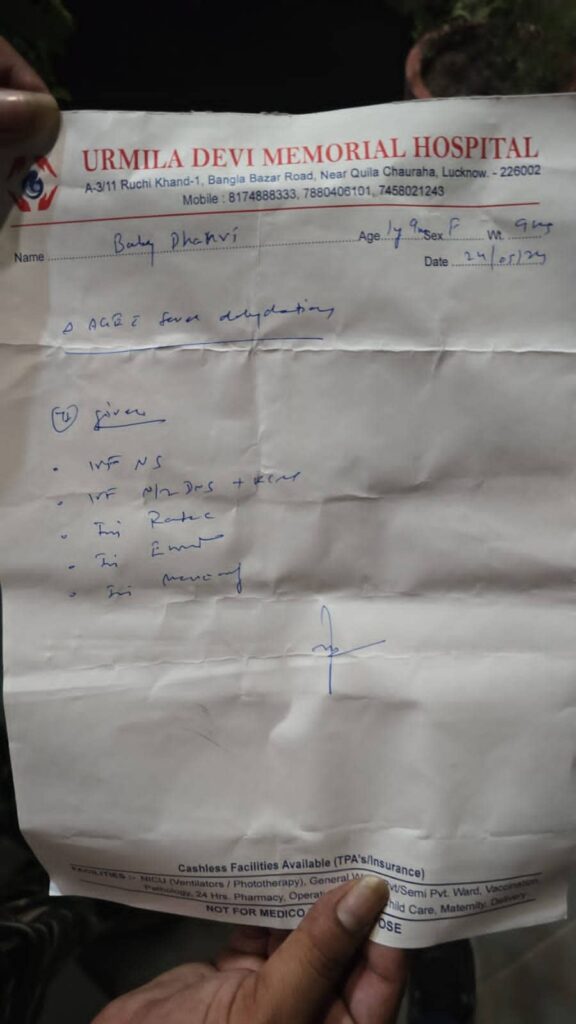 URMILA DEVI MEMORIAL HOSPITAL
A-3/11 Ruchi Khand-1, Bangla Bazar Road, Near Quila Chauraha, Lucknow. - 226002
Mobile : 8174888333, 7880406101, 7458021243
Name Baby Age 1y 9m Sex F Wt.
Date 24/05/24
Δ AGE dehydration
given
IVF NS
IVF N/2 DNS + KCl
Inj Rantac
Inj Emset
Inj
Cashless Facilities Available (TPA's/Insurance)
FACILITIES :- NICU (Ventilators / Phototherapy), General Pvt/Semi Pvt. Ward, Vaccination,
Pathology, 24 Hrs. Pharmacy, Child Care, Maternity, Delivery
NOT FOR MEDICO